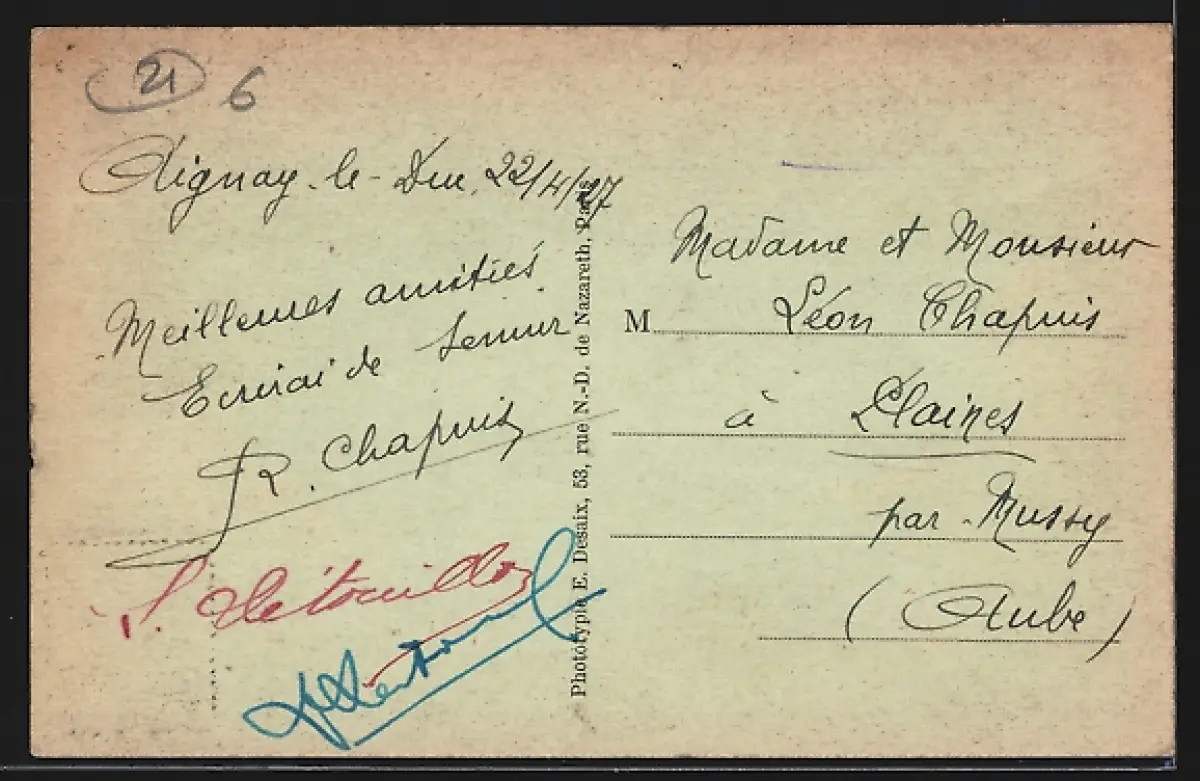 21 6
Aignay-le-Duc, 22/4/27
Meilleures amitiés
Ecrirai de Semur
R. Chapuis
S. Détouillon
Photótypie E. Desaix, 53, rue N.-D. de Nazareth, Paris
Madame et Monsieur
M Léon Chapuis
à Plaines
par Mussy
(Aube)